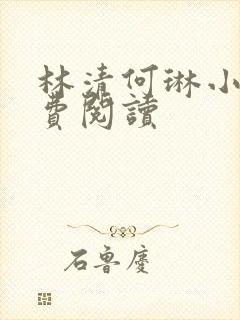 林清何琳小
費閱讀
石魯慶